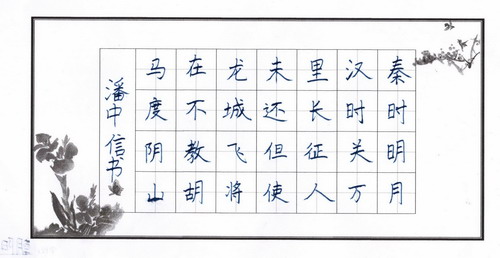 秦时明月
汉时关万
里长征人
未还但使
龙城飞将
在不教胡
马度阴山
潘中信书